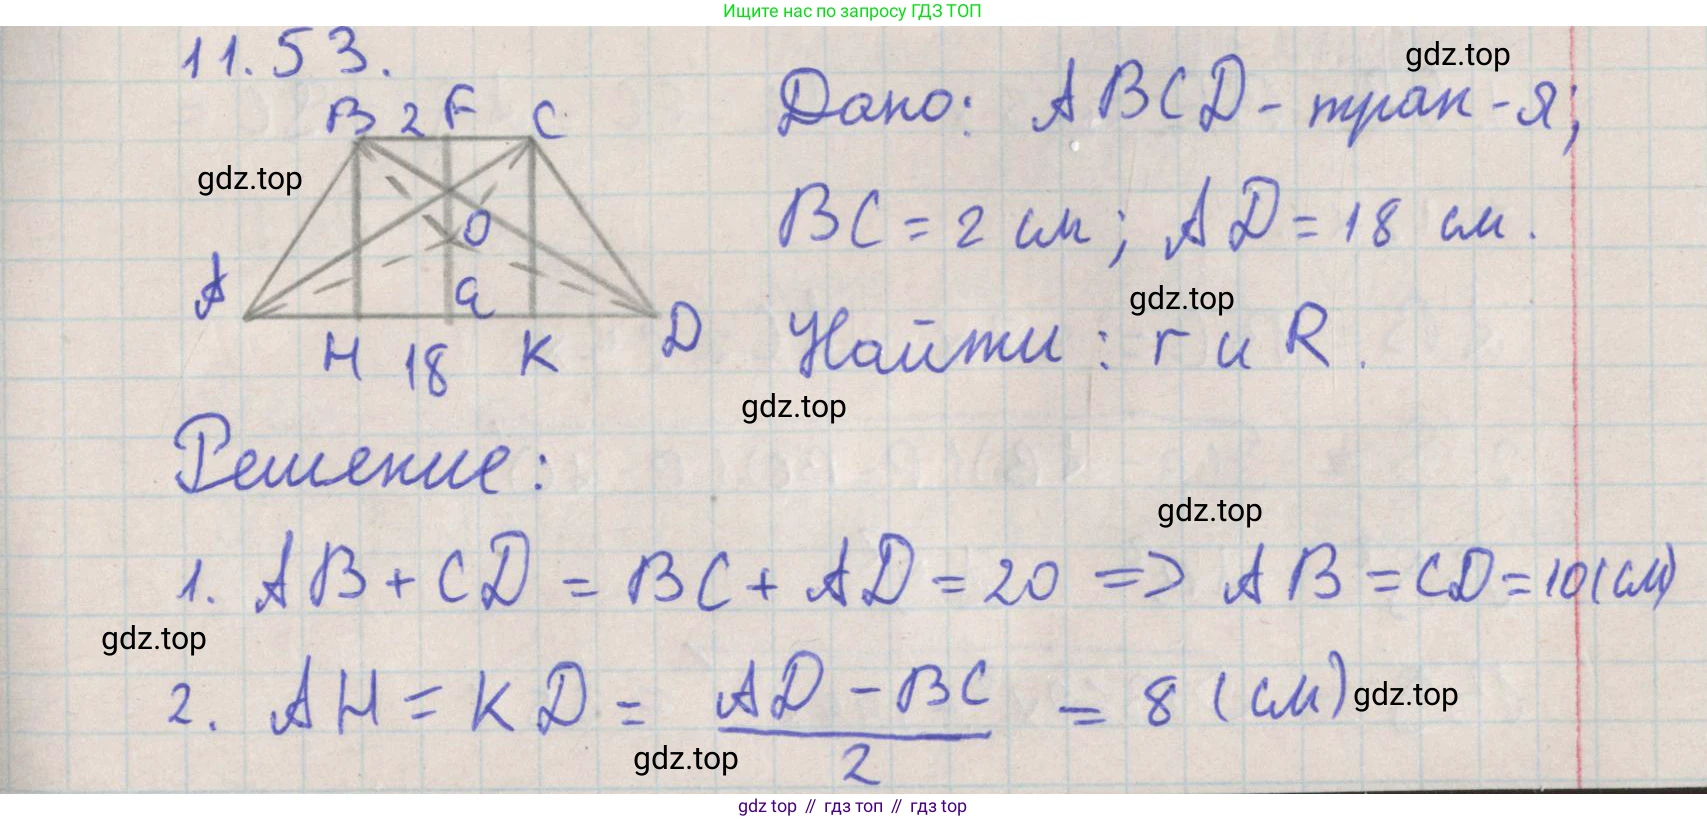 Ищите нас по запросу ГДЗ ТОП
11.53.
gdz.top
B 2 F C
Дано: ABCD - трап-я;
gdz.top
O
BC = 2 см; AD = 18 см.
A
Q
gdz.top
H 18 K D
Найти: r и R.
gdz.top
Решение:
gdz.top
1. AB + CD = BC + AD = 20 => AB = CD = 10 (см)
gdz.top
2. AH = KD = \frac{AD - BC}{2} = 8 (см)
gdz.top
gdz.top
gdz top // гдз топ // gdz top